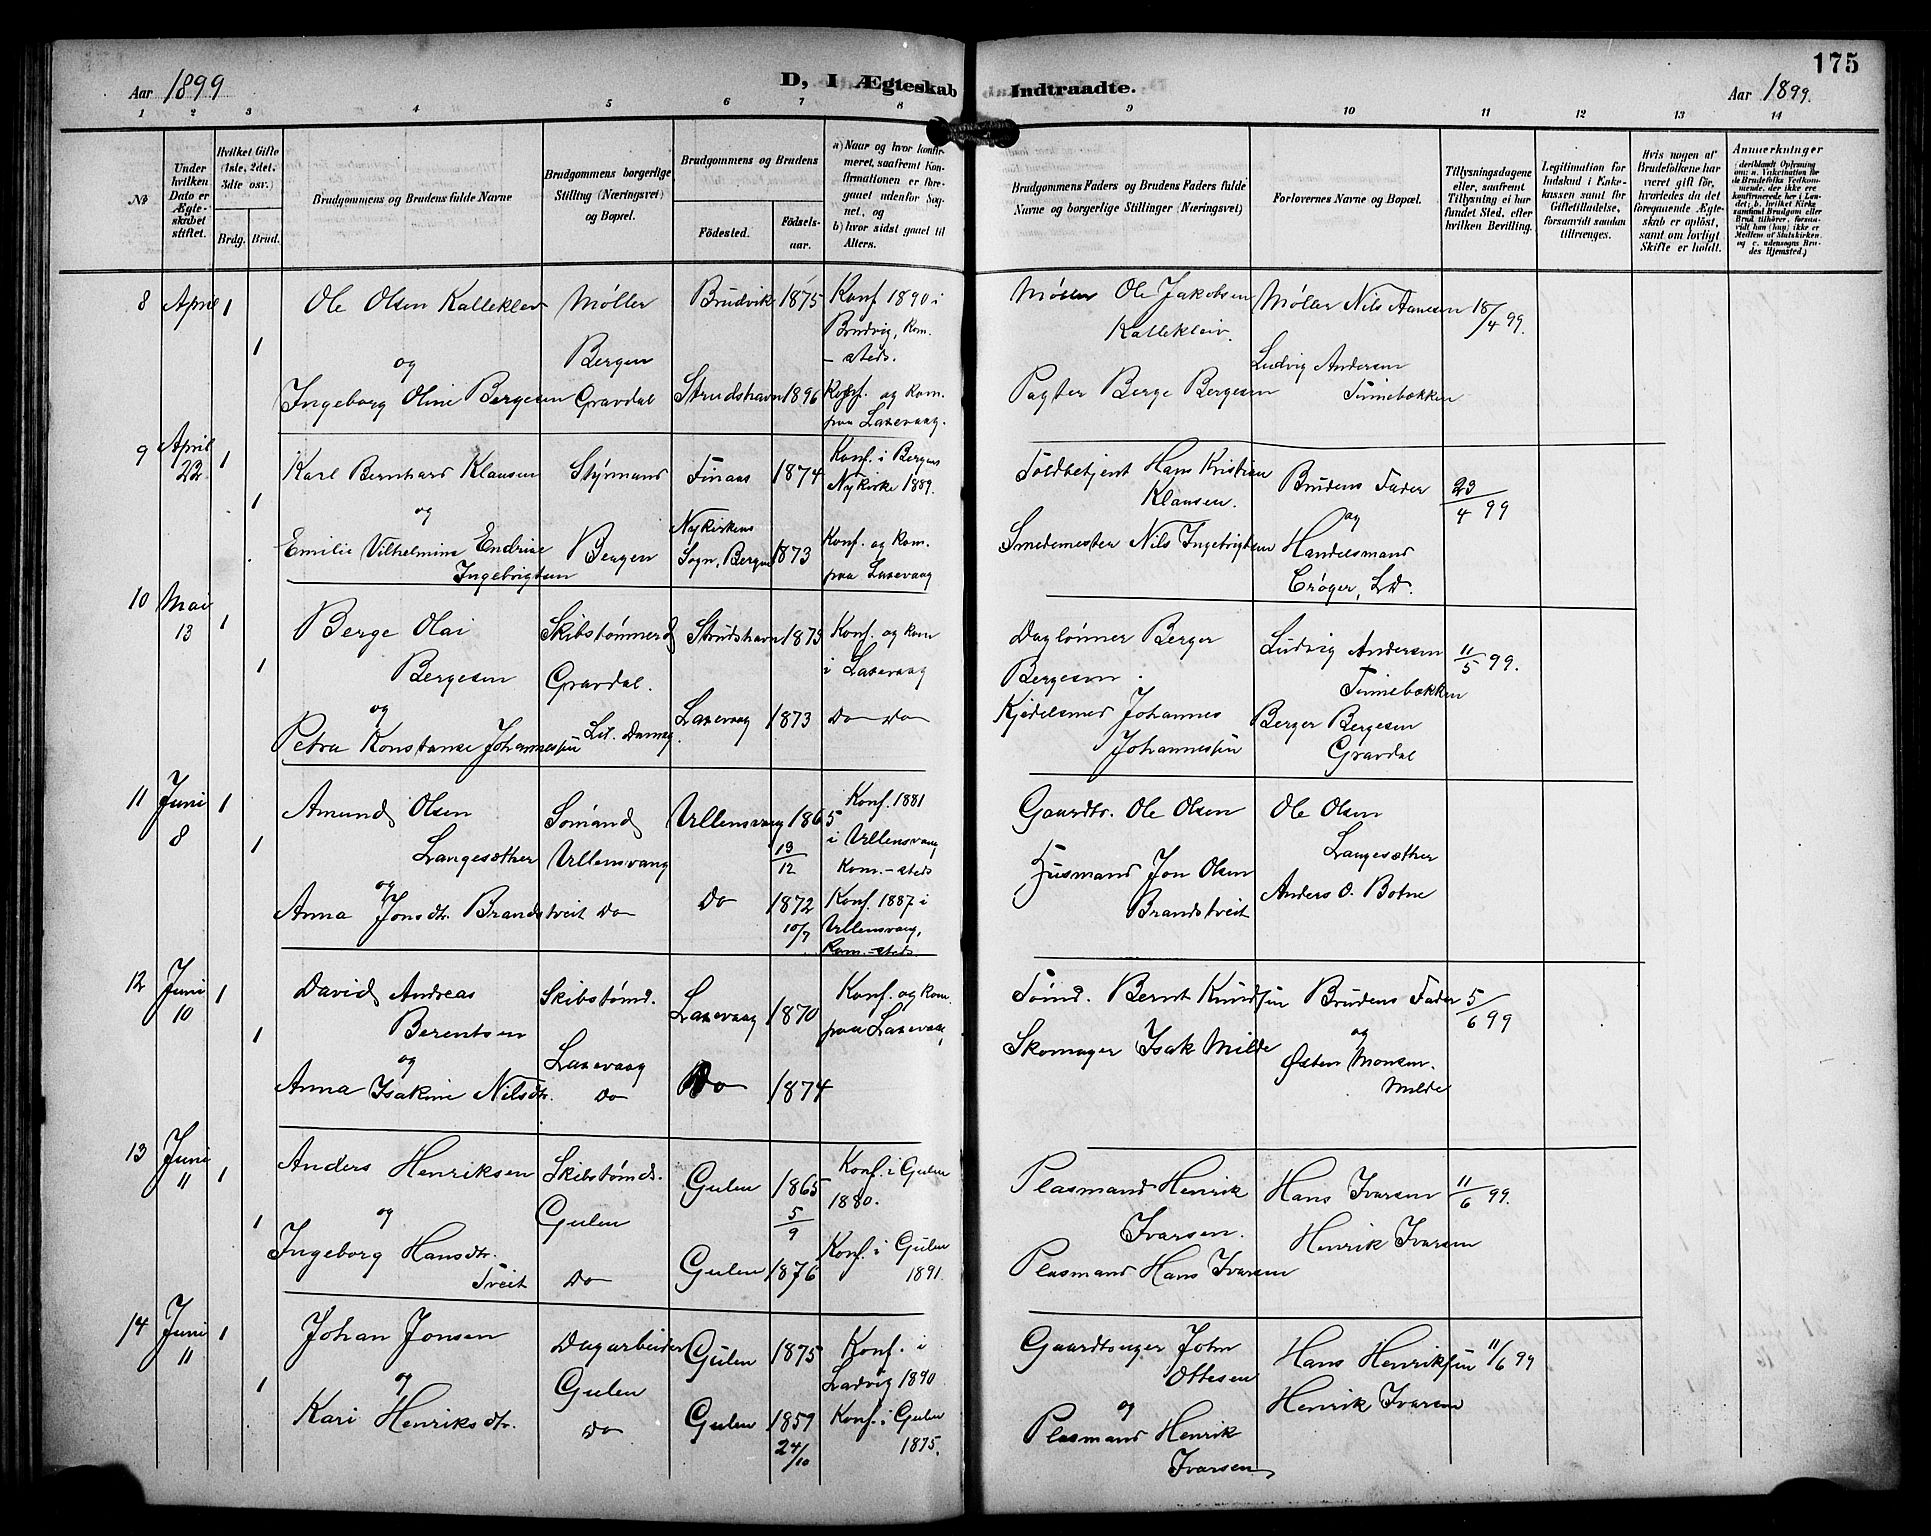 175
Aar 1899
D, I Ægteskab Indtraadte.
Aar 1899.
1 2 3 4 5 6 7 8 9 10 11 12 13 14
№
Under hvilken Dato er Ægteskabet stiftet.
Hvilket Gifte (1ste, 2det, 3die osv.)
Brdg. Brud.
Brudgommens og Brudens fulde Navne
Brudgommens borgerlige Stilling (Næringsvei) og Bopæl.
Brudgommens og Brudens
Födested.
Födselsaar.
a) Naar og hvor konfirmeret, saafremt Konfirmationen er foregaaet udenfor Sognet, og
b) hvor sidst gaaet til Alters.
Brudgommens Faders og Brudens Faders fulde Navne og borgerlige Stillinger (Næringsvei)
Forlovernes Navne og Bopæl.
Tillysningsdagene eller, saafremt Tillysning ei har fundet Sted, efter hvilken Bevilling.
Legitimation for Indskud i Enkekassen samt for Giftetilladelse, forsaavidt saadan tiltrænges.
Hvis nogen af Brudefolkene har været gift för, hvorledes da det foregaaende Ægteskab er oplöst, samt om lovligt Skifte er holdt.
Anmærkninger
(deriblandt Oplysning om: a. Vakcination for de Brudefolks Vedkommende, der ikke ere konfirmerede her i Landet; b. hvilket Kirkesamfund Brudgom eller Brud tilhörer, forsaavidt han (hun) ikke er Medlem af Statskirken, og c. udensogns Brudes Hjemsted.)
8 April 1 Ole Olsen Kalleklev Møller Brudvik 1875 Konf 1890 i Møller Ole Jakobsen Møller Nils Aanesen 18/4 99.
1 Brudvig, kom. Kallekleiv.
og Bergen – steds. Ludvig Andersen
Ingeborg Oline Bergesen Gravdal Strudshavn 1896 Konf. og kom. Pagter Berge Bergesen Tinnebækken
paa Laxevaag.
9 April 1 Karl Bernhard Klausen Styrmand Finaas 1874 Konf. i Bergens Toldbetjent Hans Kristian Brudens Fader 23/4 99
22 1 Nykirke 1889. Klausen.
og Nykirkens og
Emilie Vilhelmine Endrine Bergen Sogn, Bergen 1873 Konf. og kom. Smedemester Nils Ingebrigtsen Handelsmand
Ingebrigtsen paa Laxevaag Crøger, Ld.
10 Mai 1 Berge Olai Skibstømmerd Strudshavn 1873 Konf. og kom Daglønner Berger Ludvig Andersen 11/5 99.
13 1 Bergesen Gravdal. i Laxevaag Bergesen. Tinnebækken
og Lil. Damsg. Laxevaag 1873 Do Do Kjedelsmed Johannes Berger Bergesen
Petra Konstanse Johannessen Johannessen Gravdal
11 Juni 1 Amund Olsen Sømand Ullensvang 1865 Konf. 1881 Gaardbr. Ole Olsen Ole Olsen
8 1 Langesæther Ullensvang 19/12 i Ullensvang Langesæther
og Kom. – steds Husmand Jon Olsen
Anna Jonsdtr. Brandstveit Do Do 1872 Konf. 1887 i Brandstveit Anders O. Botne
10/7 Ullensvang,
Kom. – steds
12 Juni 1 David Andreas Skibstømd. Laxevaag 1870 Konf. og kom. Tømd. Bernt Knudsen Brudens Fader 5/6 99
10 1 Berentsen paa Laxevaag, og
og Laxevaag Skomager Isak Milde Østen Monsen
Anna Isakine Nilsdtr. Do Do 1874 Milde
13 Juni 1 Anders Henriksen Skibstømds. Gulen 1865 Konf. i Gulen Plasmand Henrik Hans Ivarsen 11/6 99.
11 1 og Gulen 5/9 1880. Ivarsen. Henrik Ivarsen
Ingeborg Hansdtr. Gulen 1876 Konf. i Gulen Plasmand Hans Ivarsen
Tveit Do 1891.
14 Juni 1 Johan Jonsen Dagarbeider Gulen 1875 Konf. i Gaardbruger John Hans Henriksen 11/6 99
11 1 og Gulen Ladvig 1890. Ottesen Henrik Ivarsen
Kari Henriksdtr. Do Gulen 1859 Konf. i Gulen og
24/10 1875. Plasmand Henrik
Ivarsen